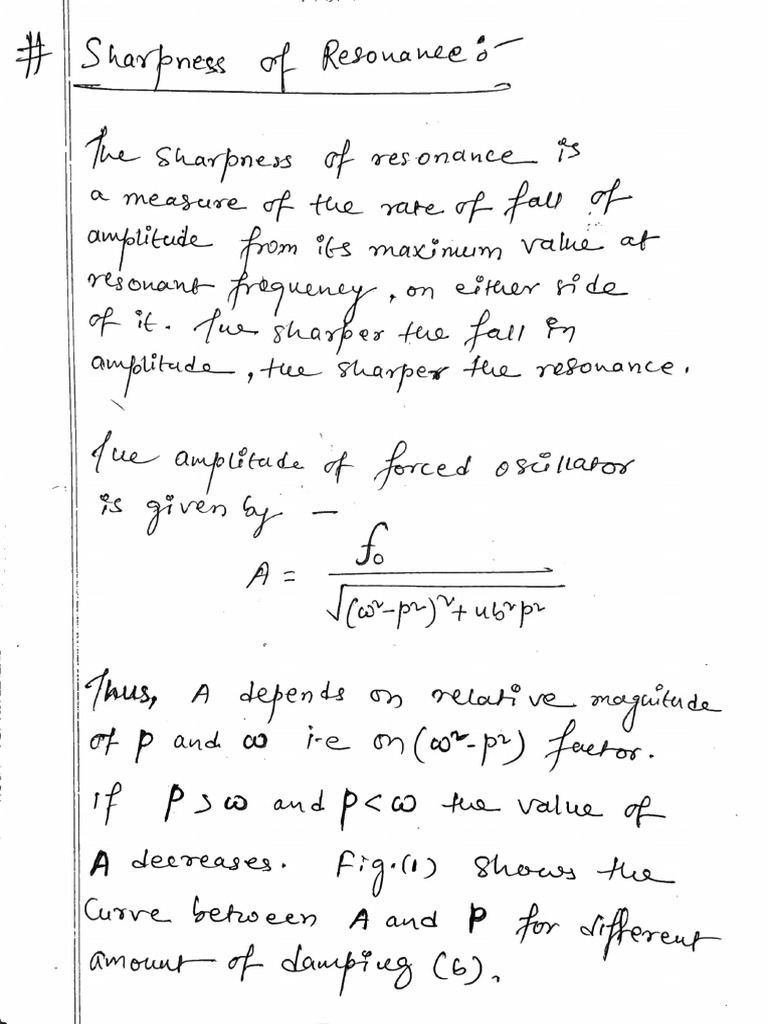 # Sharpness of Resonance :-
The sharpness of resonance is
a measure of the rate of fall of
amplitude from its maximum value at
resonant frequency, on either side
of it. The sharper the fall in
amplitude, the sharper the resonance.
The amplitude of forced oscillator
is given by —
A = f₀ / √((ω²-p²)² + 4b²p²)
Thus, A depends on relative magnitude
of p and ω i.e on (ω²-p²) factor.
if P > ω and p < ω the value of
A decreases. Fig.(1) shows the
Curve between A and P for different
amount of damping (b).